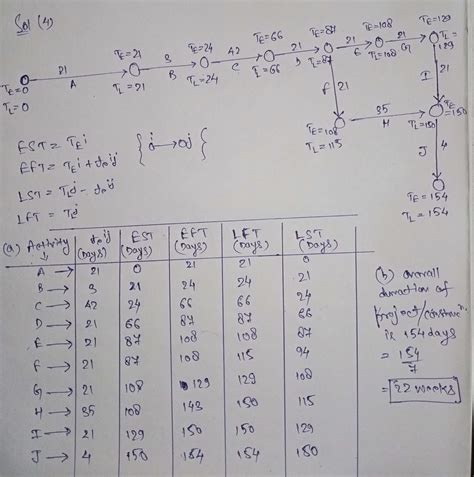 Sol (4)
TE=0
TL=0
21
A
TE=21
TL=21
3
B
TE=24
TL=24
42
C
TE=66
TL=66
21
D
TE=87
TL=87
21
E
TE=108
TL=108
21
G
TE=129
TL=129
F 21
I 21
TE=108
TL=115
35
H
TE=150
TL=150
J 4
TE=154
TL=154
EST = TEi
EFT = TEi + teij { i → oj }
LST = TLj - teij
LFT = TLj
(a) Activity teij (Days) EST (Days) EFT (Days) LFT (Days) LST (Days)
A → 21 0 21 21 0
B → 3 21 24 24 21
C → 42 24 66 66 24
D → 21 66 87 87 66
E → 21 87 108 108 87
F → 21 87 108 115 94
G → 21 108 129 129 108
H → 35 108 143 150 115
I → 21 129 150 150 129
J → 4 150 154 154 150
(b) overall
duration of
project/
is 154 days
= 154/7
= 22 weeks